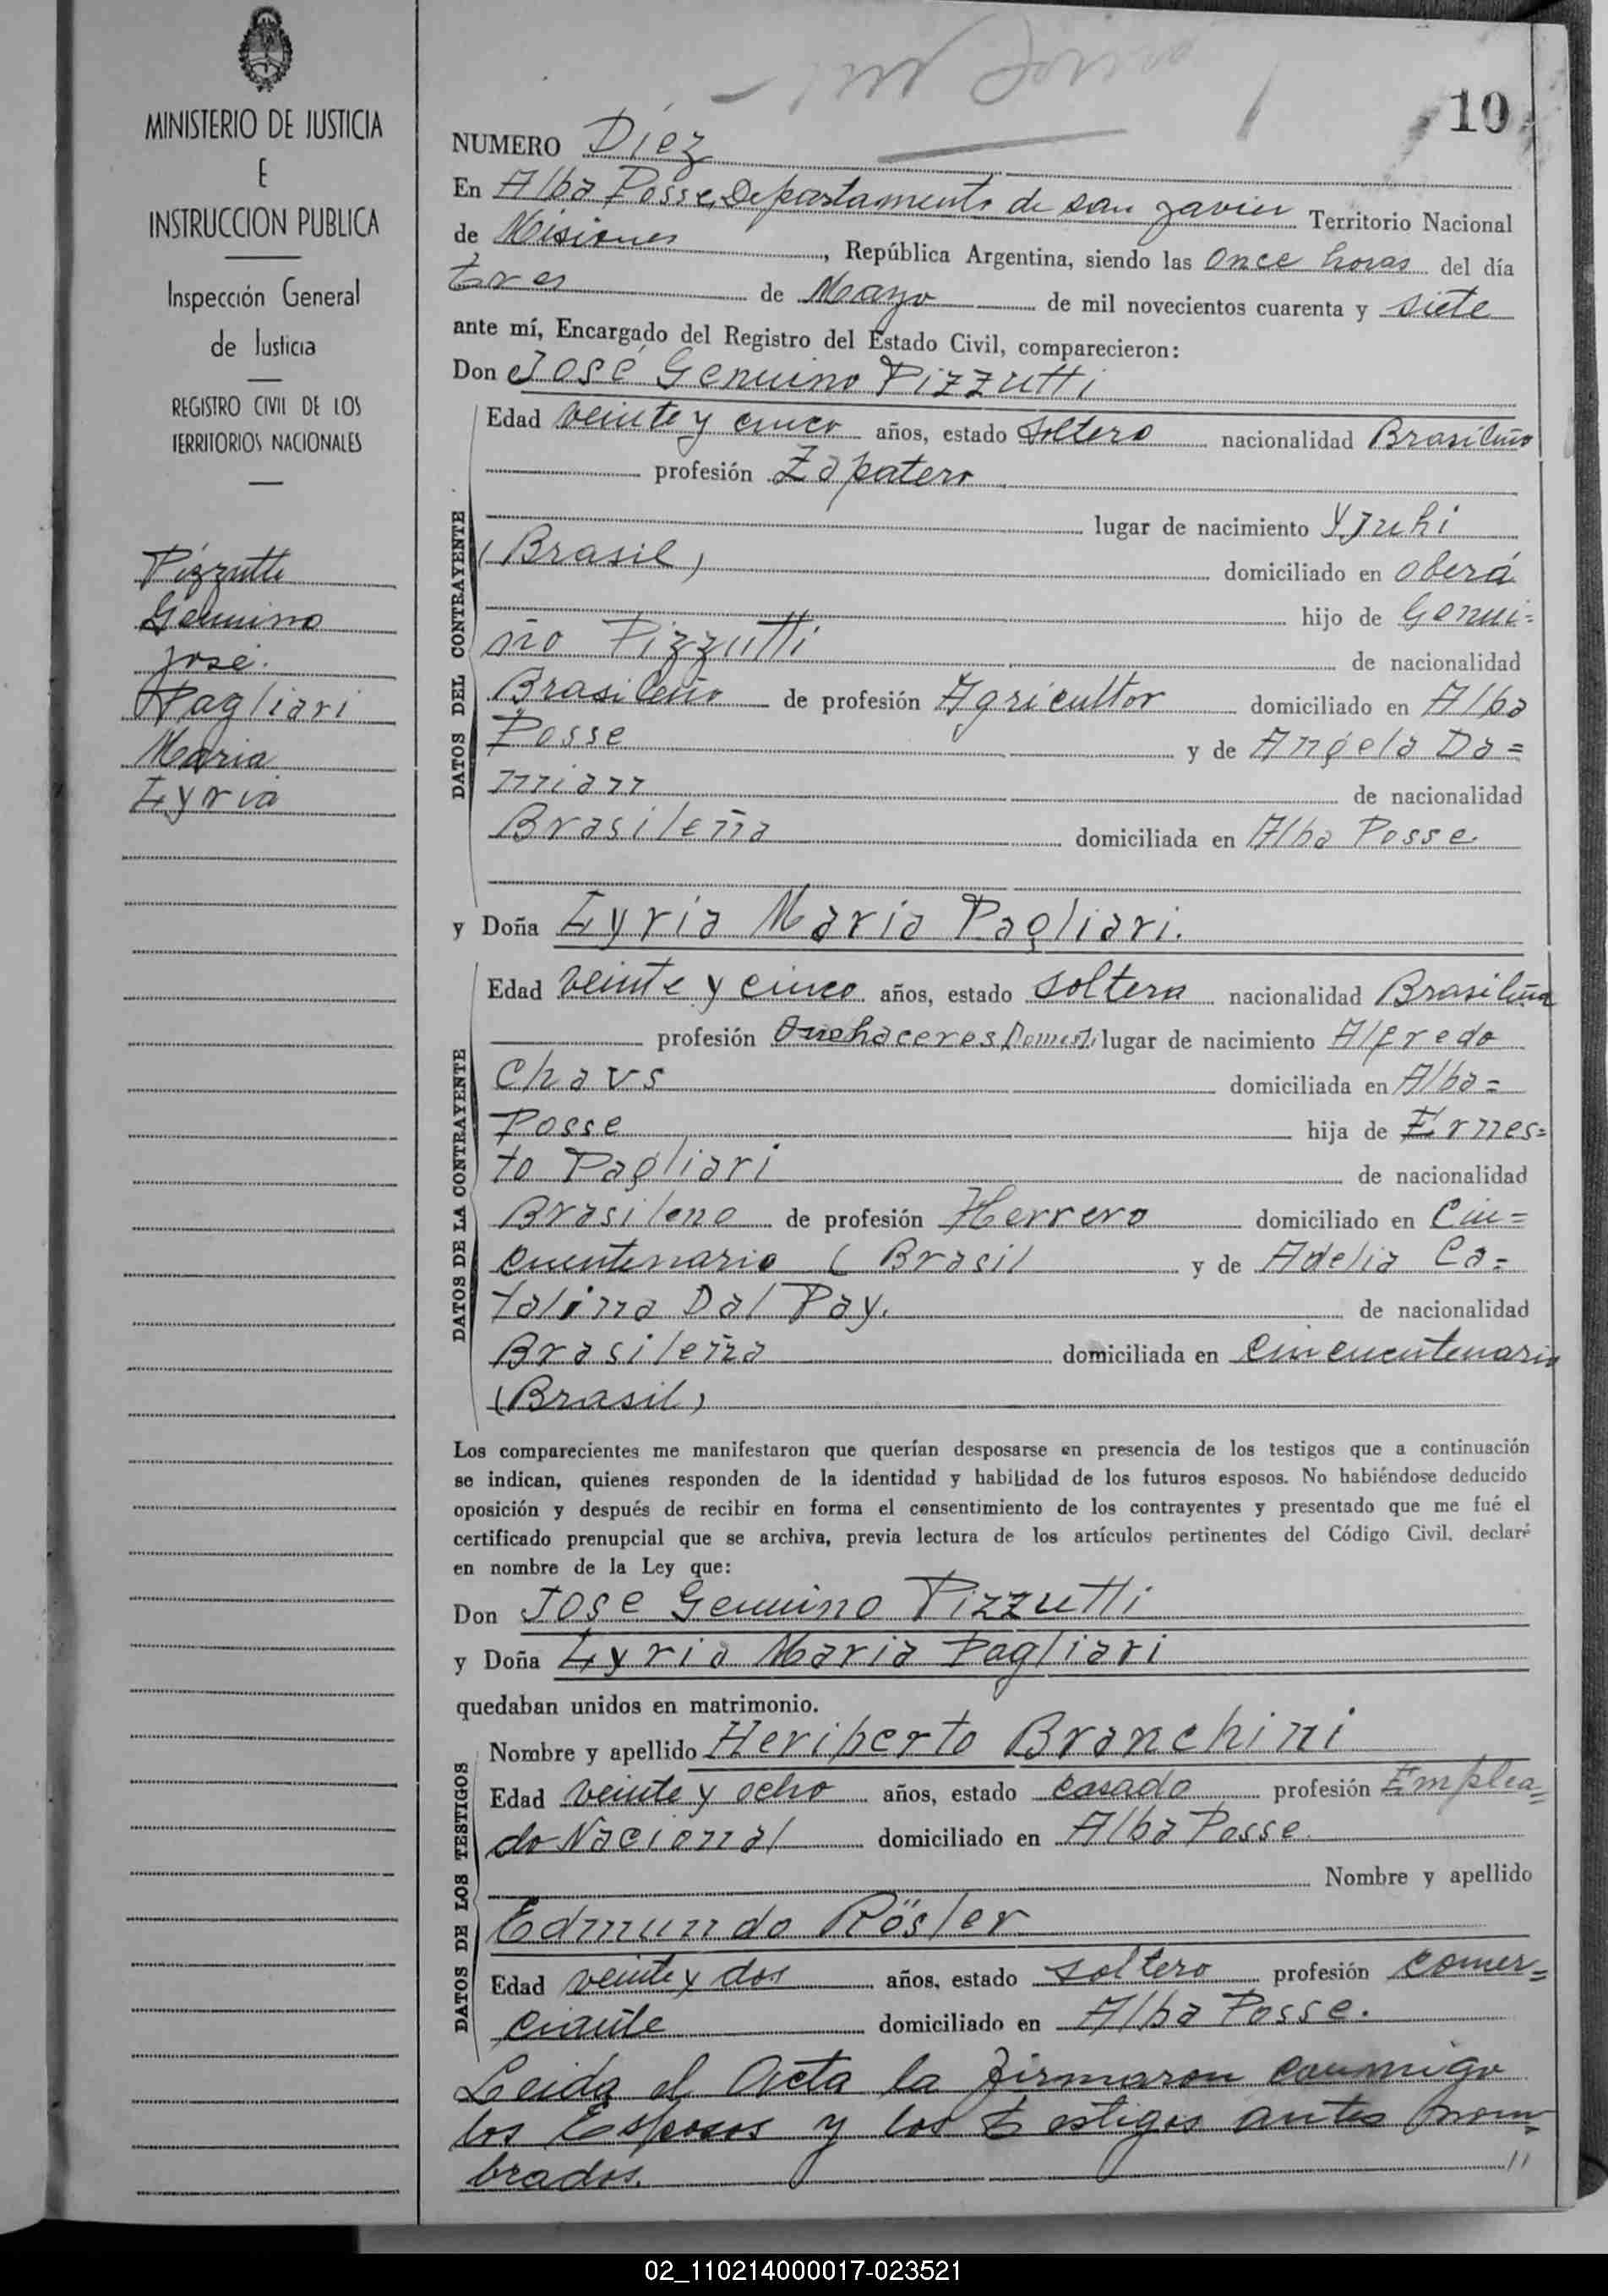 MINISTERIO DE JUSTICIA
E
INSTRUCCION PUBLICA
Inspección General
de Justicia
REGISTRO CIVIL DE LOS
TERRITORIOS NACIONALES
Pizzutti
Genuino
José.
Pagliari
Maria
Lyria
10
NUMERO Diez
En Alba Posse, Departamento de San Javier Territorio Nacional
de Misiones, República Argentina, siendo las Once horas del día
tres de Mayo de mil novecientos cuarenta y siete
ante mí, Encargado del Registro del Estado Civil, comparecieron:
Don José Genuino Pizzutti
DATOS DEL CONTRAYENTE
Edad veinte y cinco años, estado Soltero nacionalidad Brasileño
profesión Zapatero
lugar de nacimiento Yjuhi
(Brasil) domiciliado en Oberá
hijo de Genui=
no Pizzutti de nacionalidad
Brasileño de profesión Agricultor domiciliado en Alba
Posse y de Angela Da=
mian de nacionalidad
Brasileña domiciliada en Alba Posse
y Doña Lyria Maria Pagliari.
DATOS DE LA CONTRAYENTE
Edad veinte y cinco años, estado soltera nacionalidad Brasileña
profesión Quehaceres Domest. lugar de nacimiento Alfredo
Chavs domiciliada en Alba=
Posse hija de Ernes=
to Pagliari de nacionalidad
Brasileno de profesión Herrero domiciliado en Cin=
cuentenario (Brasil y de Adelia Ca=
talina Dal Pay. de nacionalidad
Brasileña domiciliada en Cincuentenario
(Brasil)
Los comparecientes me manifestaron que querían desposarse en presencia de los testigos que a continuación
se indican, quienes responden de la identidad y habilidad de los futuros esposos. No habiéndose deducido
oposición y después de recibir en forma el consentimiento de los contrayentes y presentado que me fué el
certificado prenupcial que se archiva, previa lectura de los artículos pertinentes del Código Civil. declaré
en nombre de la Ley que:
Don Jose Genuino Pizzutti
y Doña Lyria Maria Pagliari
quedaban unidos en matrimonio.
DATOS DE LOS TESTIGOS
Nombre y apellido Heriberto Branchini
Edad veinte y ocho años, estado casado profesión Emplea=
do Nacional domiciliado en Alba Posse.
Nombre y apellido
Edmundo Rösler
Edad veinte y dos años, estado soltero profesión comer=
ciante domiciliado en Alba Posse.
Leida el Acta la firmaron conmigo
los Esposos y los testigos antes nom=
brados. //
02_110214000017-023521